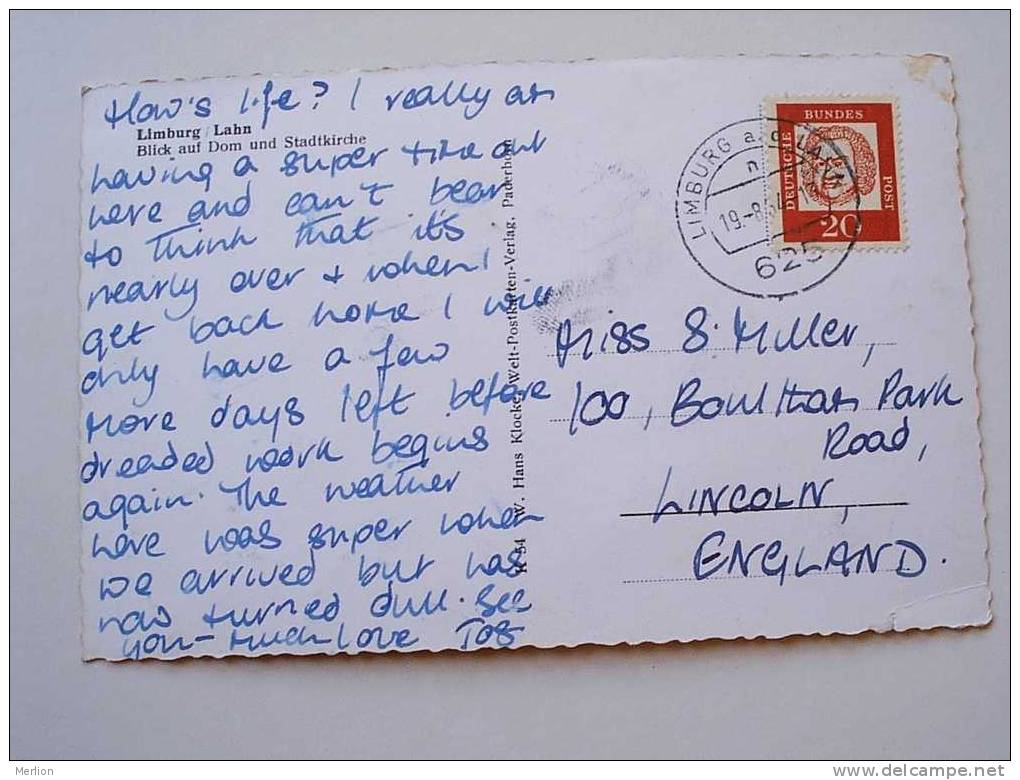 How's life? I really am
Limburg / Lahn
Blick auf Dom und Stadtkirche
having a super time out
here and can't bear
to think that it's
nearly over + when I
get back home I will
only have a few
more days left before
dreaded work begins
again. The weather
here was super when
we arrived but has
now turned dull. See
you - much love
K 54 W. Hans Klocke, Welt-Postkarten-Verlag, Paderborn
DEUTSCHE BUNDES POST
20
LIMBURG a. d. LAHN
n
19.-8.64
625
Miss S. Miller,
100, Boultham Park
Road,
LINCOLN,
ENGLAND.
Merlion
www.delcampe.net